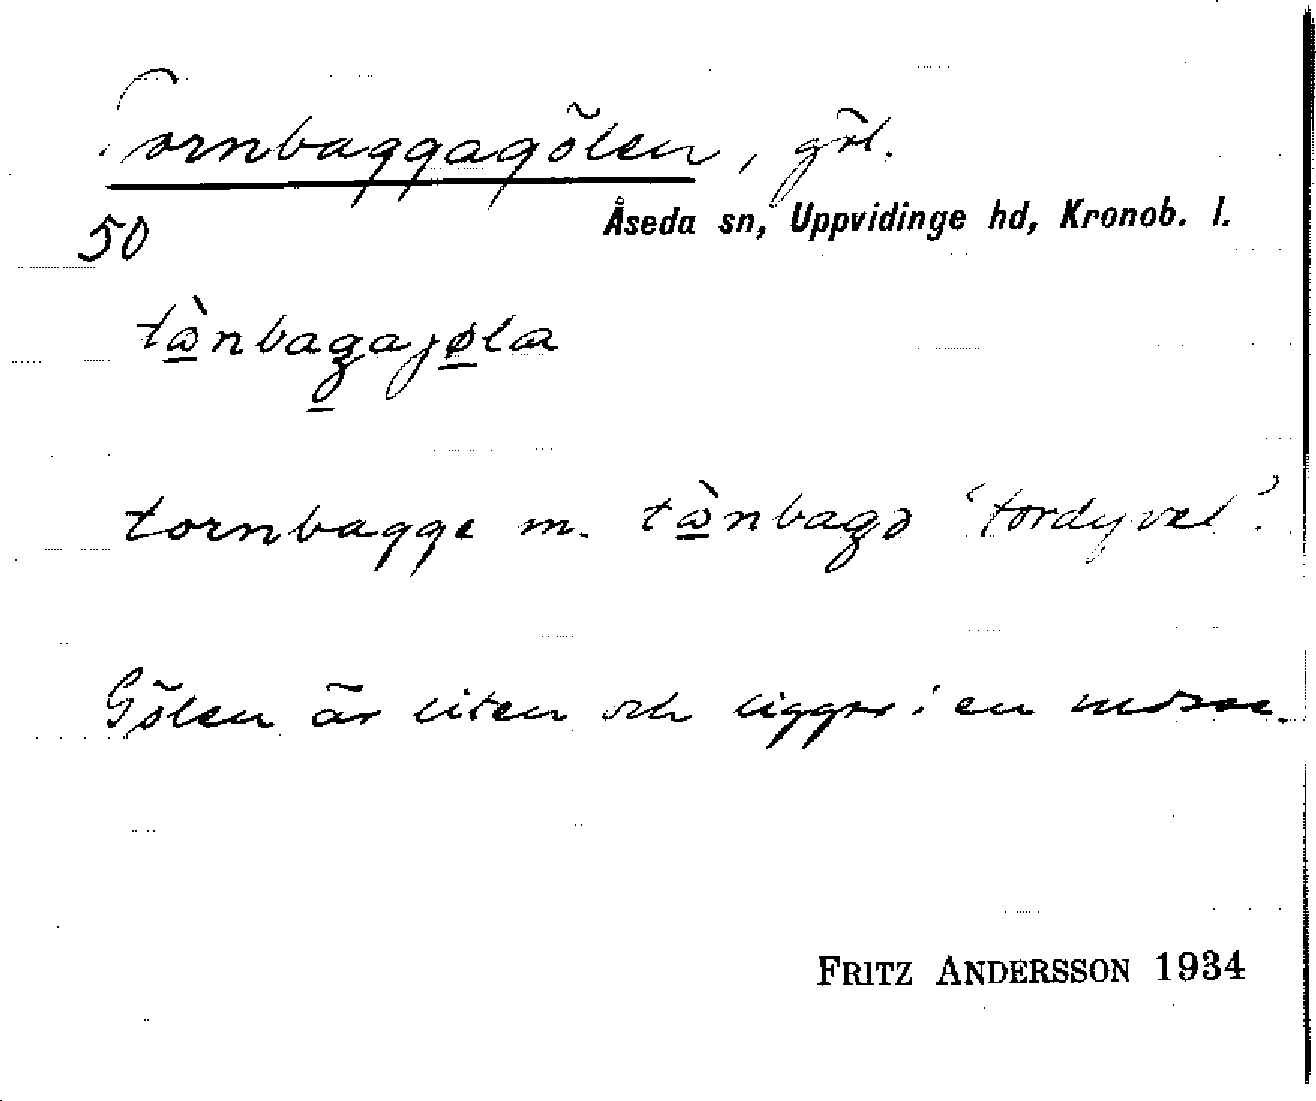 Tornbaggagölen, göl.
Åseda sn, Uppvidinge hd, Kronob. l.
50
tὼnbagajøla
tornbagge m. tὼnbagə 'tordyvel'.
Gölen är liten och ligger i en mosse.
FRITZ ANDERSSON 1934